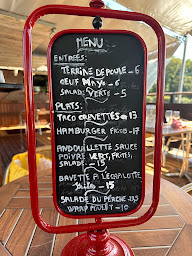 MENU
ENTRÉES:
TERRINE DE POULE - 6
OEUF MAYO - 6
SALADE VERTE - 5
PLATS:
TACO CREVETTES - 13
HAMBURGER FRICHO - 17
ANDOUILLETTE SAUCE
POIVRE VERT, FRITES,
SALADE - 15
BAVETTE A L'ECHALOTTE
- 15
SALADE DU PÊCHE
WRAP POULET - 10